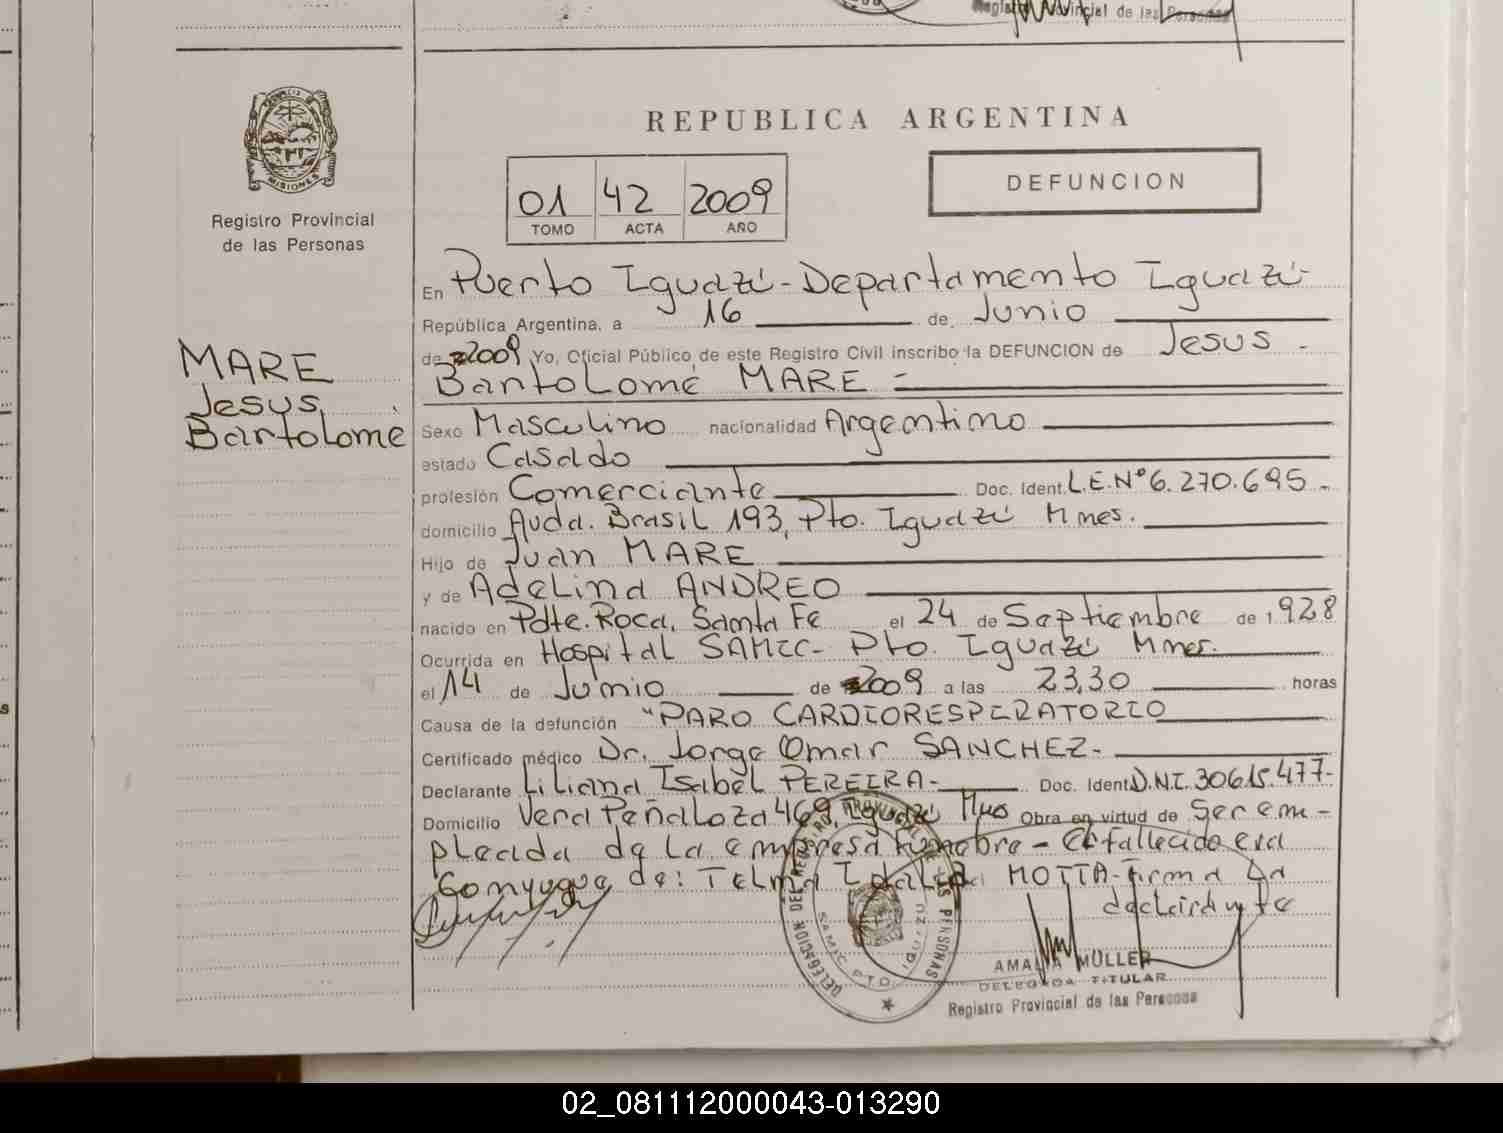 Registro Provincial de las Personas
REPUBLICA ARGENTINA
PROVINCIA DE
MISIONES
Registro Provincial
de las Personas
01 42 2009
TOMO ACTA AÑO
DEFUNCION
MARE
Jesus
Bartolome
En Puerto Iguazú - Departamento Iguazú -
República Argentina, a 16 de Junio
de 2009 Yo, Oficial Público de este Registro Civil inscribo la DEFUNCION de Jesus -
Bartolomé MARE -
Sexo Masculino nacionalidad Argentino
estado Casado
profesión Comerciante Doc. Ident. L.E.Nº 6.270.695 -
domicilio Avda. Brasil 193, Pto. Iguazú Mnes.
Hijo de Juan MARE
y de Adelina ANDREO
nacido en Pdte. Roca, Santa Fe el 24 de Septiembre de 1.928
Ocurrida en Hospital SAMIC - Pto. Iguazú Mnes.
el 14 de Junio de 2009 a las 23,30 horas
Causa de la defunción "PARO CARDIORESPIRATORIO
Certificado médico Dr. Jorge Omar SANCHEZ -
Declarante Liliana Isabel PEREIRA - Doc. Ident. D.N.I. 30.615.477 -
Domicilio Vera Peñaloza 469, Iguazú Mnes Obra en virtud de Ser em -
pleada de la empresa funebre - El fallecido era
Conyugue de: Telma Idalia MOTTA - firma La
declarante
DELEGACION DEL REGISTRO PROVINCIAL DE LAS PERSONAS
SAMIC PTO. IGUAZU
AMALIA MULLER
DELEGADA TITULAR
Registro Provincial de las Personas
02_081112000043-013290